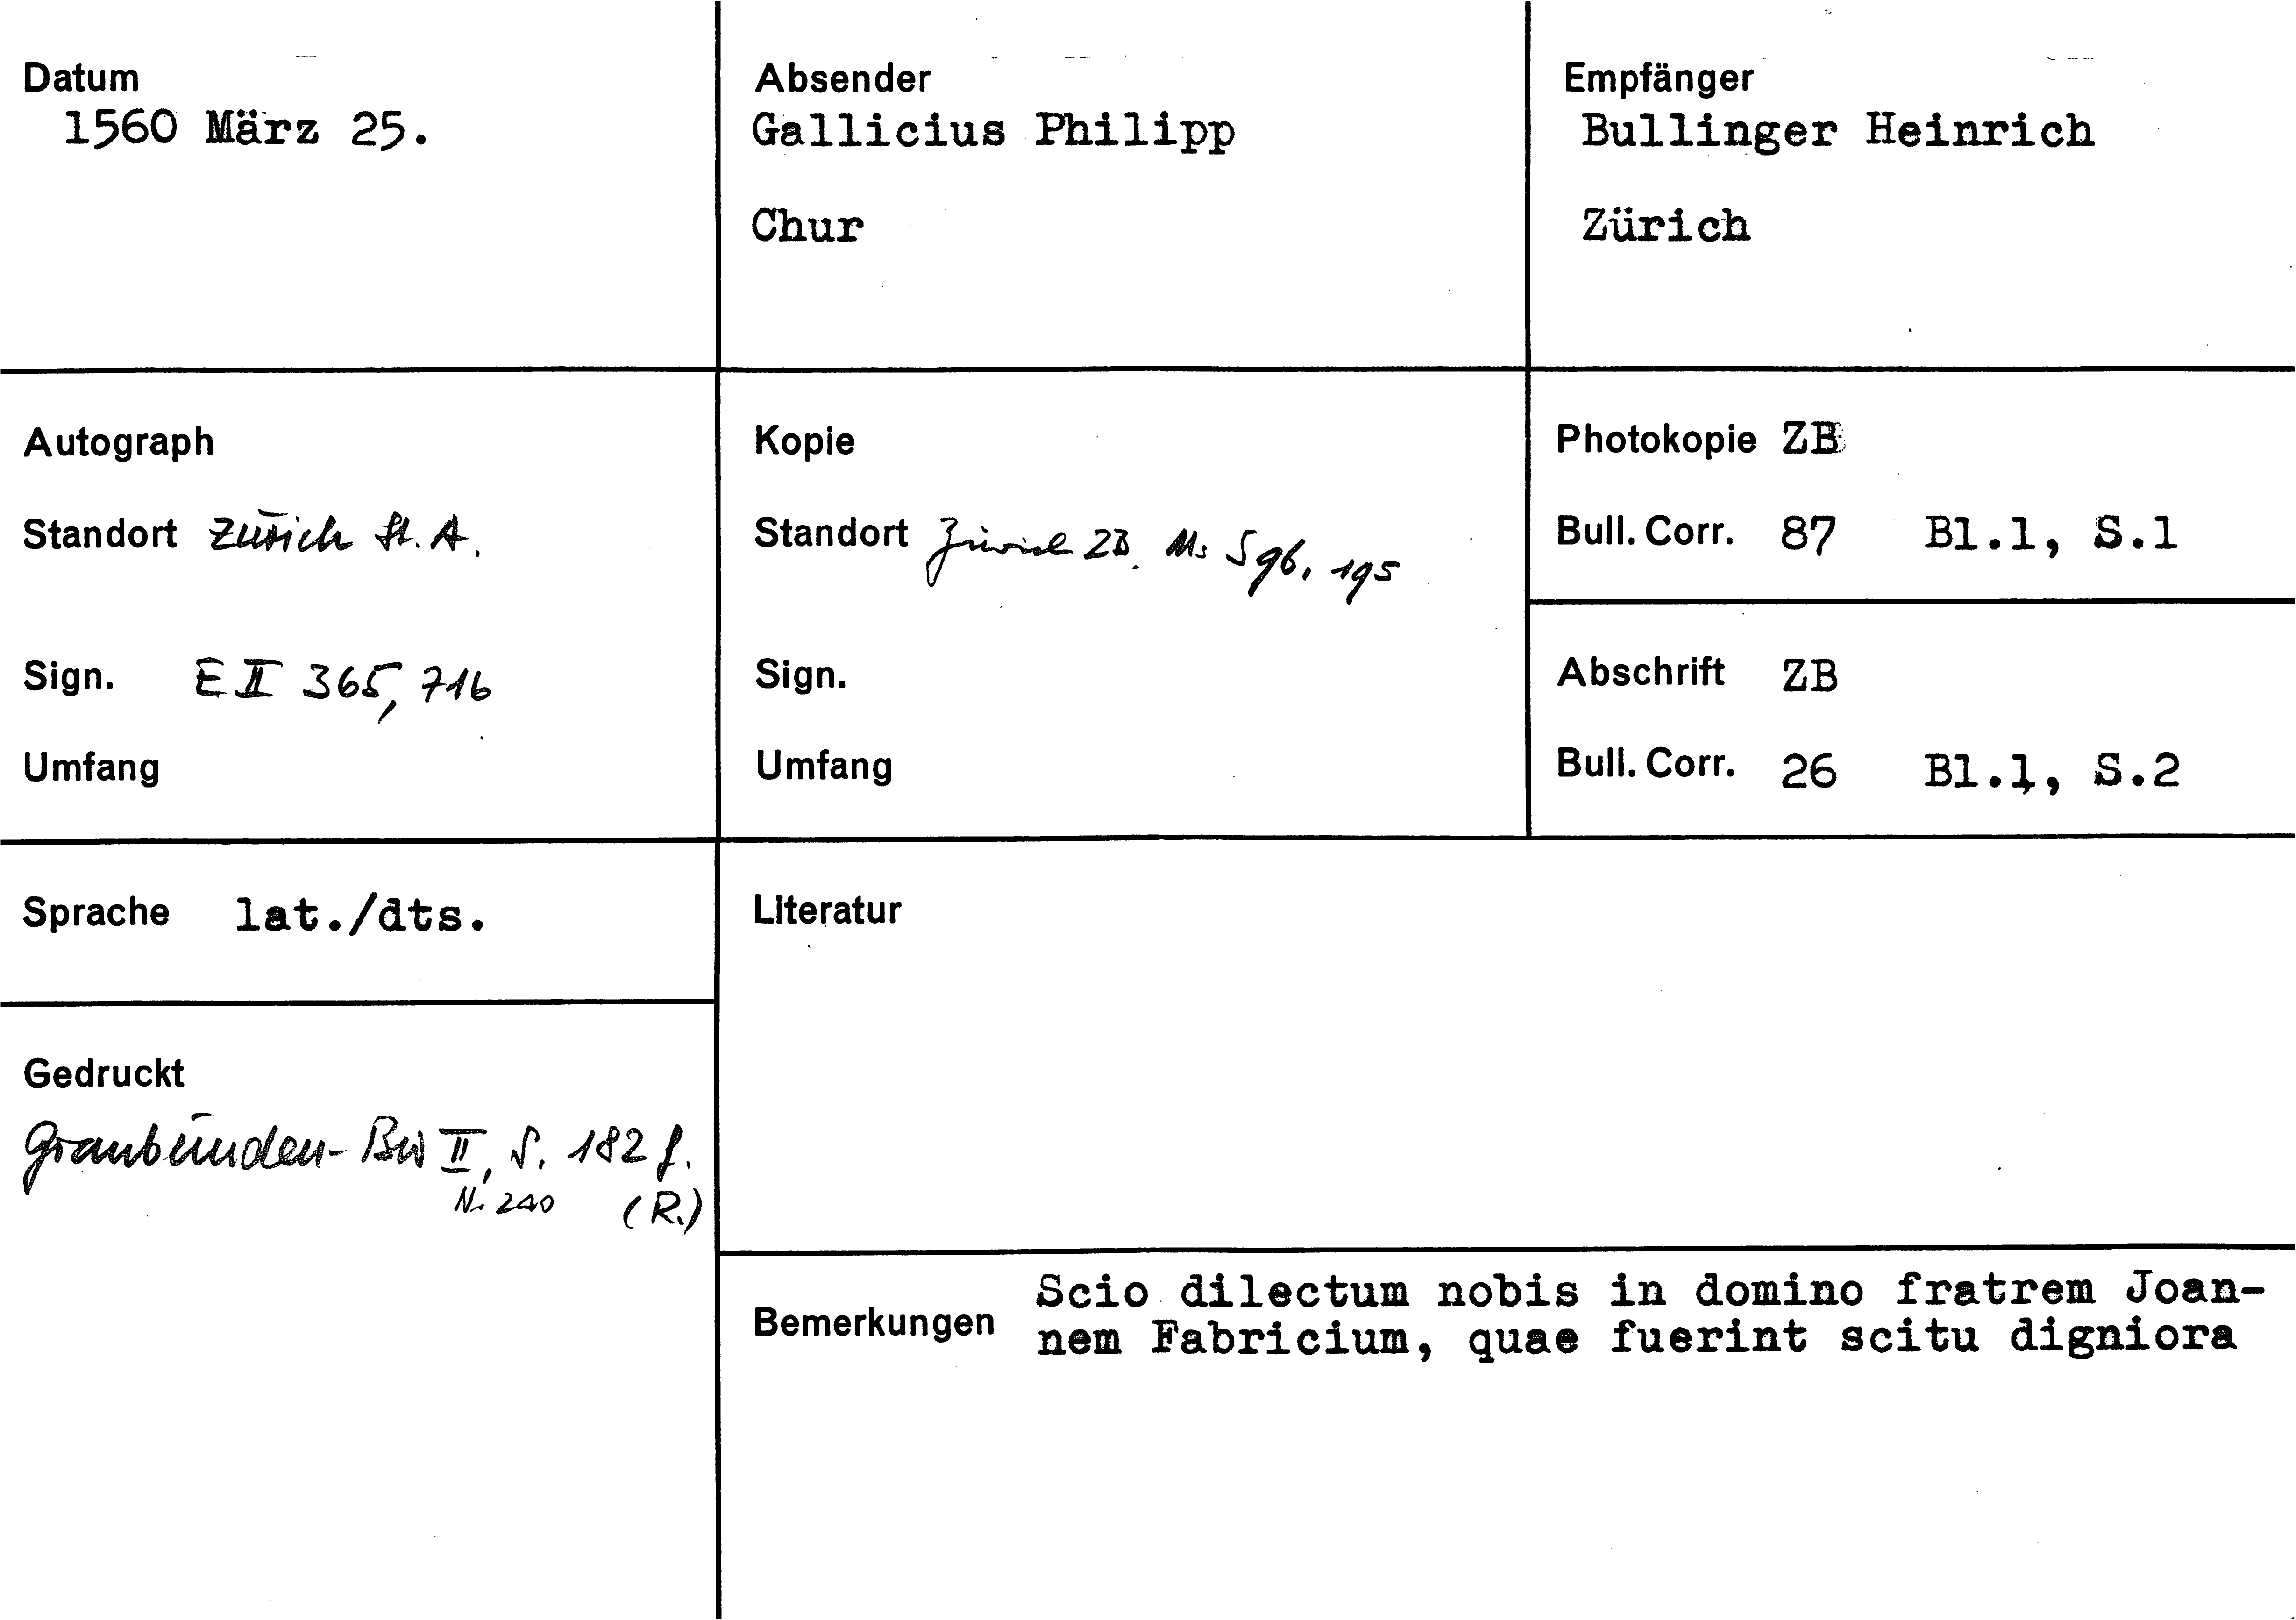 Datum
1560 März 25.
Absender
Gallicius Philipp
Chur
Empfänger
Bullinger Heinrich
Zürich
Autograph
Standort Zürich St. A.
Sign. E II 365, 716
Umfang
Kopie
Standort Zürich ZB. Ms S 96, 195
Sign.
Umfang
Photokopie ZB
Bull. Corr. 87 Bl.1, S.1
Abschrift ZB
Bull. Corr. 26 Bl.1, S.2
Sprache lat./dts.
Literatur
Gedruckt
Graubünden-Bw II, S. 182 f.
Nr. 240 (R.)
Bemerkungen Scio dilectum nobis in domino fratrem Joan-
nem Fabricium, quae fuerint scitu digniora